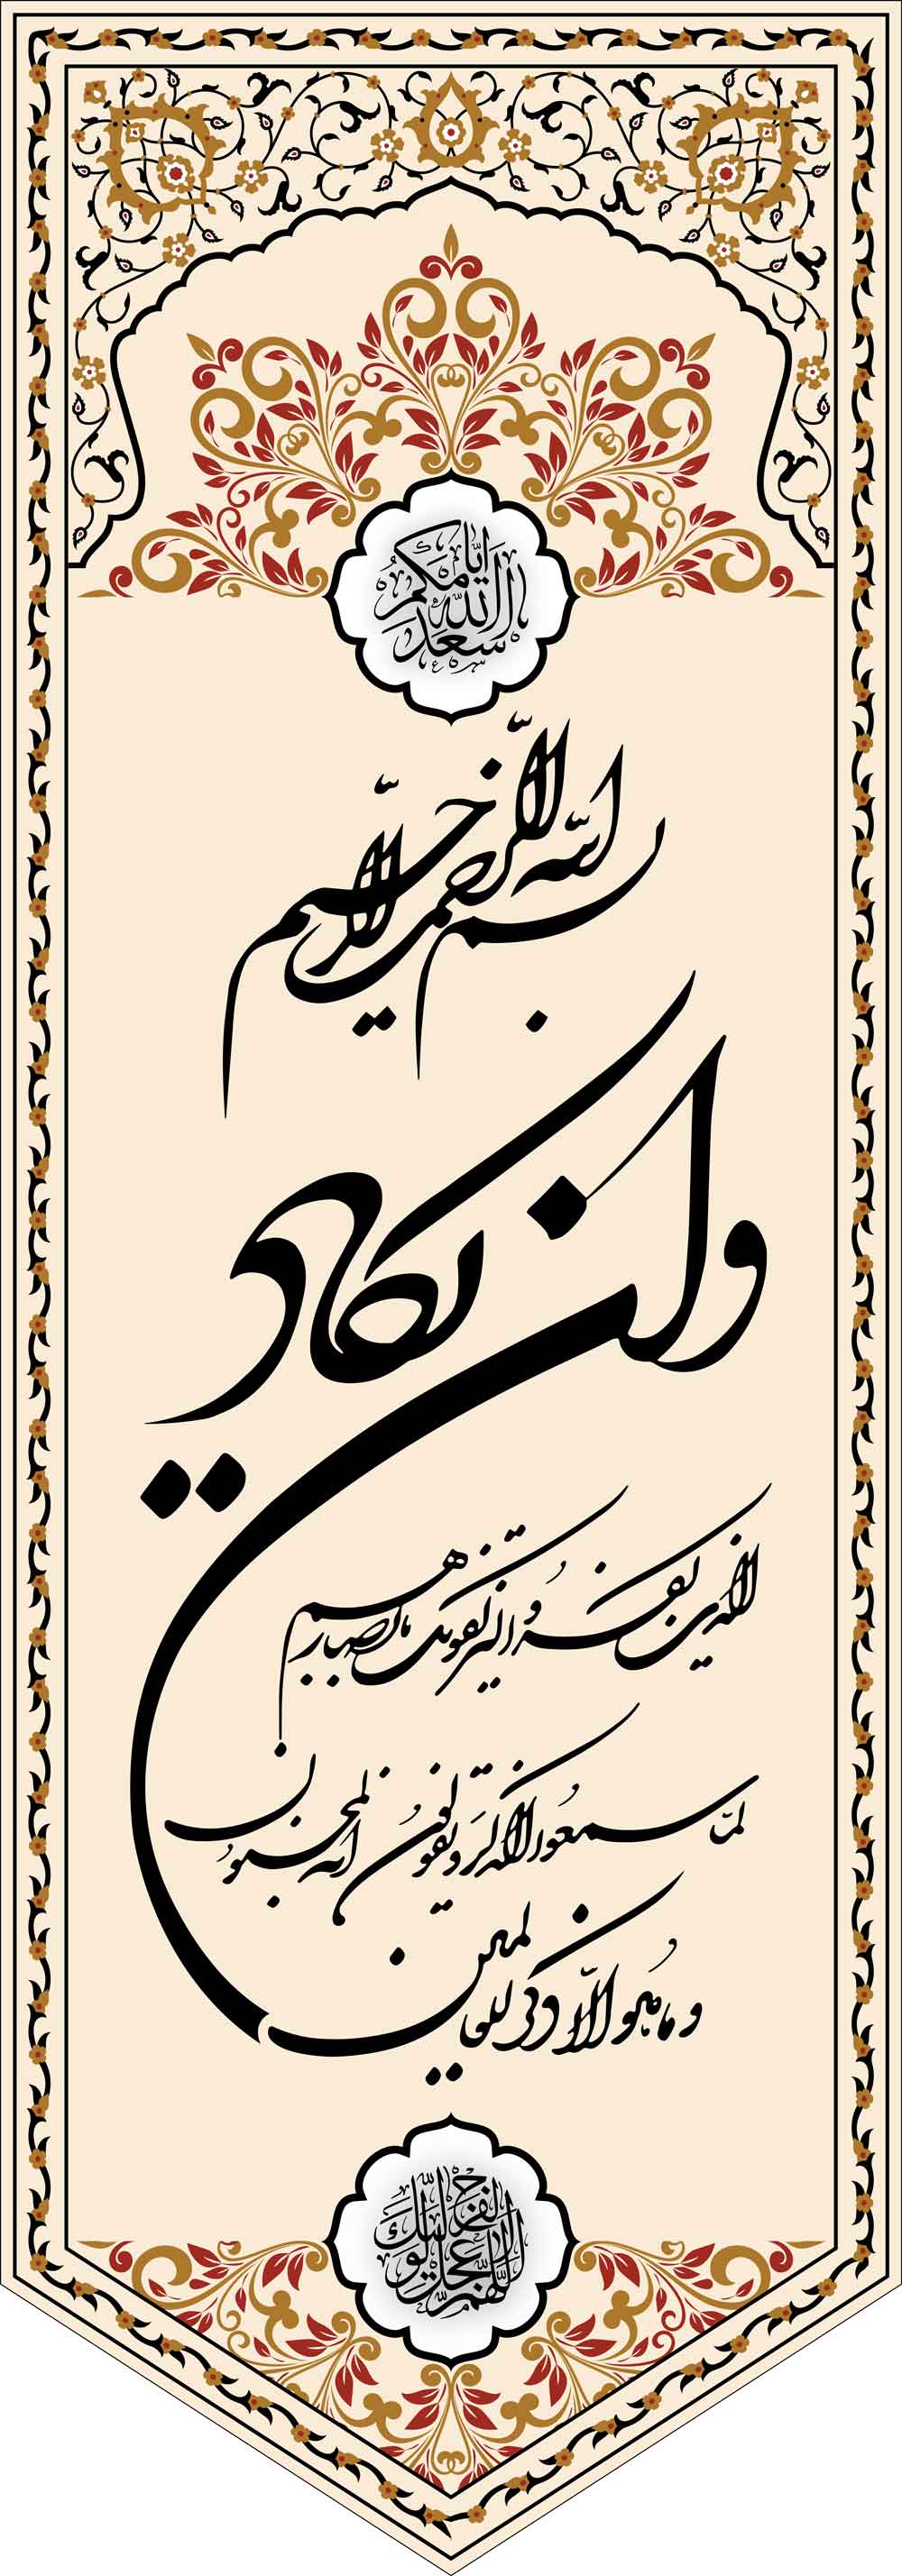 اسعد الله ایامکم
بسم الله الرحمن الرحیم
وان یکاد
الذین کفروا لیزلقونک بابصارهم
لمّا سمعوا الذکر و یقولون انه لمجنون
و ما هو الّا ذکر للعالمین
اللّهم عجل لولیک الفرج